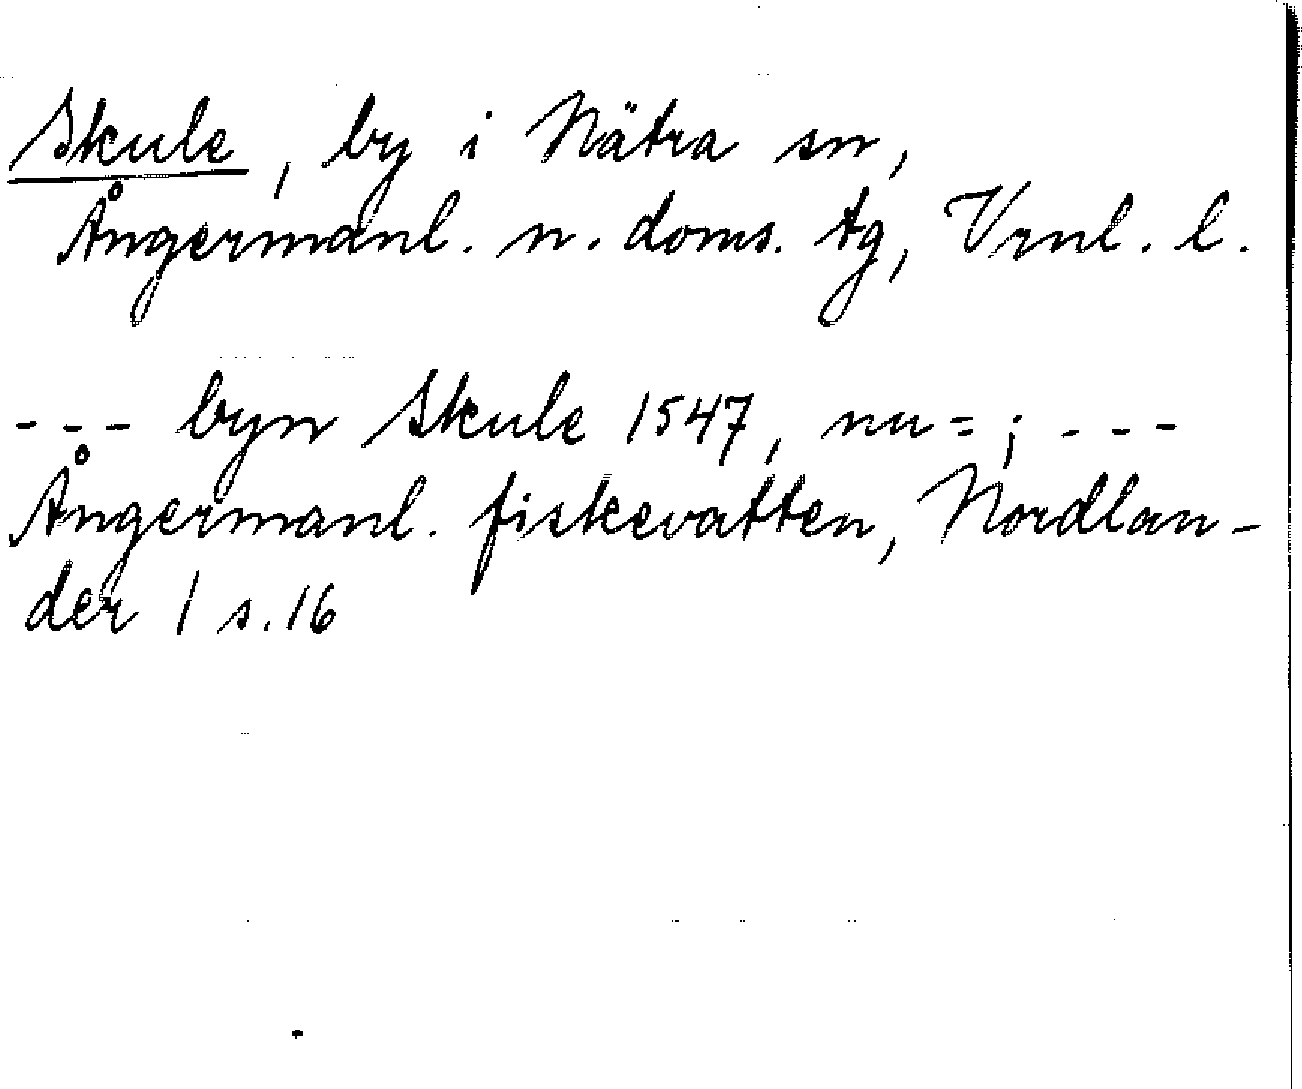 Skule, by i Nätra sn,
Ångermanl. n. doms. tg, Vrnl. l.
--- byn Skule 1547, nu = ; ---
Ångermanl. fiskevatten, Nordlan-
der 1 s. 16